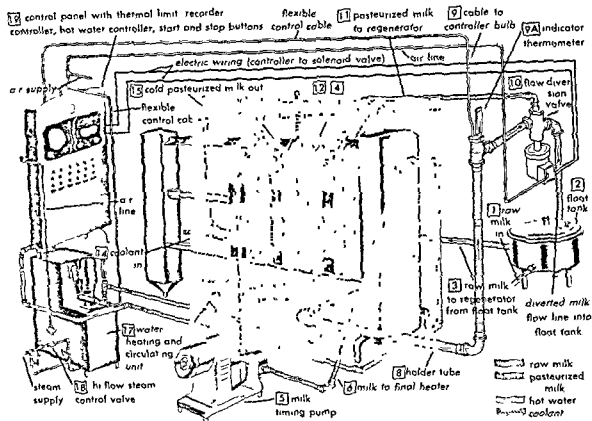 19 control panel with thermal limit recorder
controller, hot water controller, start and stop buttons
flexible
control cable
11 pasteurized milk
to regenerator
9 cable to
controller bulb
9A indicator
thermometer
electric wiring (controller to solenoid valve)
air line
a r supply
15 cold pasteurized m lk out
12 4
10 flow diver
sion
valve
flexible
control cab
a r
line
2
float
tank
1 raw
milk
in
14 coolant
in
3 raw milk
to regenerator
from float tank
diverted milk
flow line into
float tank
17 water
heating and
circulating
unit
8 holder tube
6 milk to final heater
steam
supply
18 hi flow steam
control valve
5 milk
timing pump
raw milk
pasteurized
milk
hot water
coolant